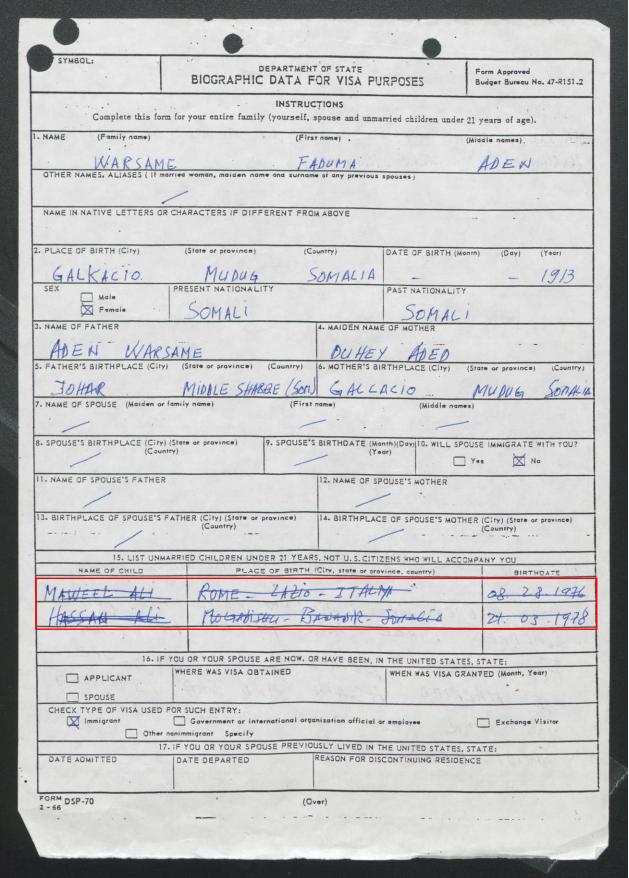 SYMBOL:
DEPARTMENT OF STATE
BIOGRAPHIC DATA FOR VISA PURPOSES
Form Approved
Budget Bureau No. 47-R151.2
INSTRUCTIONS
Complete this form for your entire family (yourself, spouse and unmarried children under 21 years of age).
1. NAME (Family name) (First name) (Middle names)
WARSAME FADUMA ADEN
OTHER NAMES, ALIASES (If married woman, maiden name and surname of any previous spouses)
NAME IN NATIVE LETTERS OR CHARACTERS IF DIFFERENT FROM ABOVE
2. PLACE OF BIRTH (City) (State or province) (Country) DATE OF BIRTH (Month) (Day) (Year)
GALKACIO MUDUG SOMALIA - - 1913
SEX PRESENT NATIONALITY PAST NATIONALITY
Male
Female SOMALI SOMALI
3. NAME OF FATHER 4. MAIDEN NAME OF MOTHER
ADEN WARSAME DUHEY ADED
5. FATHER'S BIRTHPLACE (City) (State or province) (Country) 6. MOTHER'S BIRTHPLACE (City) (State or province) (Country)
JOHAR MIDDLE GALLACIO MUDUG SOMALIA
7. NAME OF SPOUSE (Maiden or family name) (First name) (Middle names)
8. SPOUSE'S BIRTHPLACE (City) (State or province) (Country) 9. SPOUSE'S BIRTHDATE (Month)(Day) (Year) 10. WILL SPOUSE IMMIGRATE WITH YOU?
Yes No
11. NAME OF SPOUSE'S FATHER 12. NAME OF SPOUSE'S MOTHER
13. BIRTHPLACE OF SPOUSE'S FATHER (City) (State or province) (Country) 14. BIRTHPLACE OF SPOUSE'S MOTHER (City) (State or province) (Country)
15. LIST UNMARRIED CHILDREN UNDER 21 YEARS, NOT U.S. CITIZENS WHO WILL ACCOMPANY YOU
NAME OF CHILD PLACE OF BIRTH (City, state or province, country) BIRTHDATE
MAWEEL ALI ROME - LAZIO - ITALIA 08 28 1976
HASSAN ALI MOGADISHU - BANADIR - SOMALIA 21. 03. 1978
16. IF YOU OR YOUR SPOUSE ARE NOW, OR HAVE BEEN, IN THE UNITED STATES, STATE:
APPLICANT WHERE WAS VISA OBTAINED WHEN WAS VISA GRANTED (Month, Year)
SPOUSE
CHECK TYPE OF VISA USED FOR SUCH ENTRY:
Immigrant Government or international organization official or employee Exchange Visitor
Other nonimmigrant Specify
17. IF YOU OR YOUR SPOUSE PREVIOUSLY LIVED IN THE UNITED STATES, STATE:
DATE ADMITTED DATE DEPARTED REASON FOR DISCONTINUING RESIDENCE
FORM DSP-70
2 - 66
(Over)